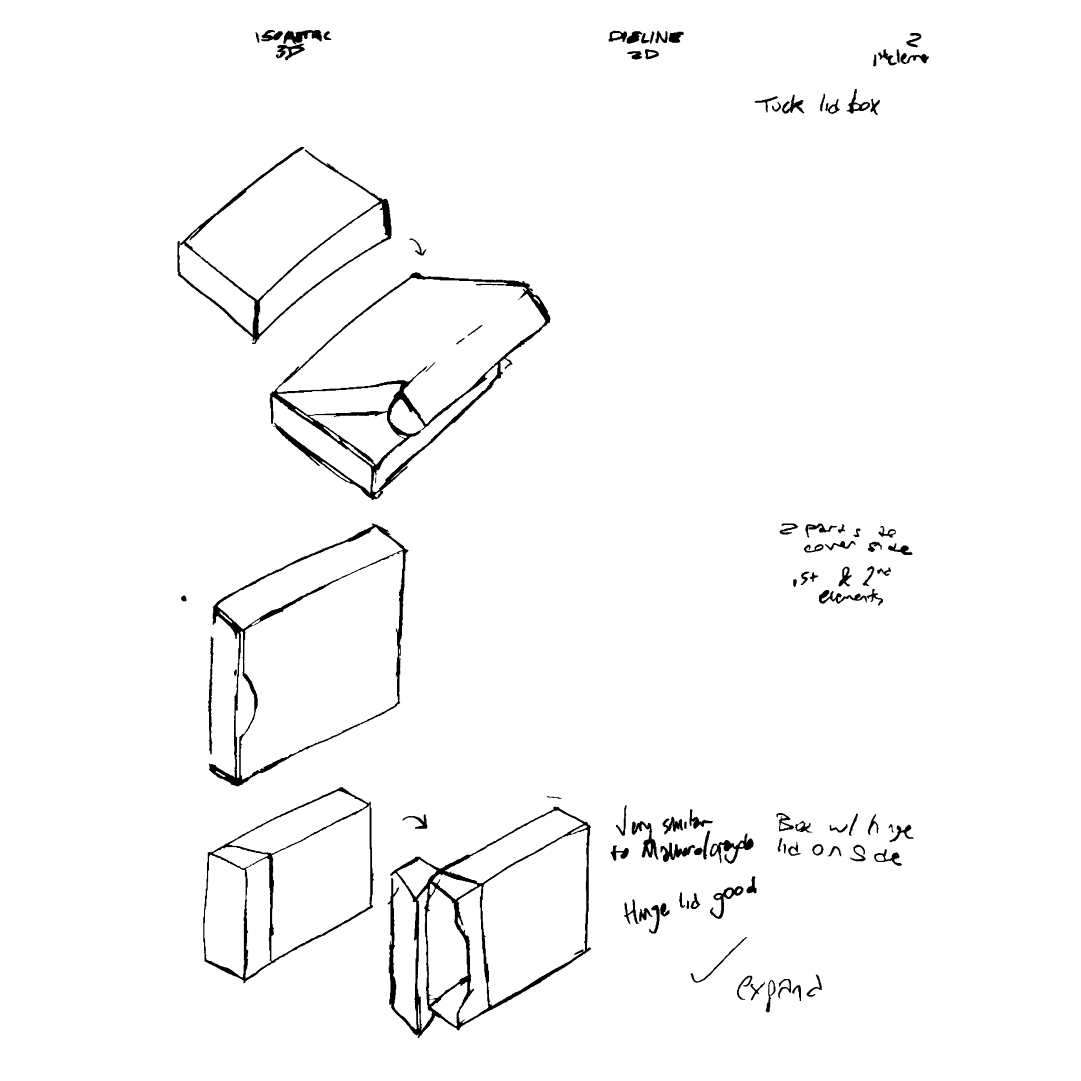 ISOMETRIC
3D
DIELINE
2D
2
1st
Tuck lid box
2 parts to
cover side
1st & 2nd
elements
Very similar
to
Box w/ hinge
lid on side
Hinge lid good
expand